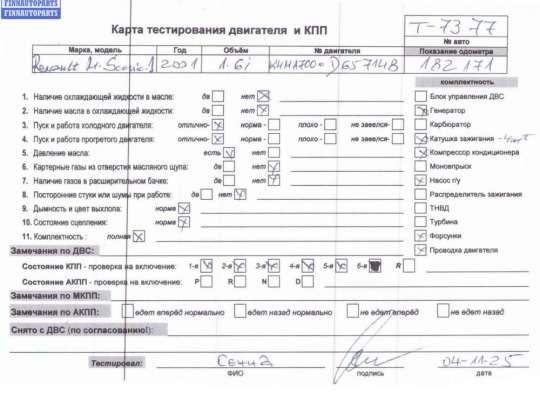 FINNAUTOPARTS
FINNAUTOPARTS
Карта тестирования двигателя и КПП
Т-7377
№ авто
Марка, модель Год Объём № двигателя Показание одометра
Renault M. Scenic-1 2001 1.6i K4MA700 D657148 182 171
комплектность
1. Наличие охлаждающей жидкости в масле: да нет Блок управления ДВС
2. Наличие масла в охлаждающей жидкости: да нет Генератор
3. Пуск и работа холодного двигателя: отлично- норма - плохо - не завелся- Карбюратор
4. Пуск и работа прогретого двигателя: отлично- норма - плохо - не завелся- Катушка зажигания
5. Давление масла: есть нет Компрессор кондиционера
6. Картерные газы из отверстия масляного щупа: да нет Моновпрыск
7. Наличие газов в расширительном бачке: да нет Насос г/у
8. Посторонние стуки или шумы при работе: да нет Распределитель зажигания
9. Дымность и цвет выхлопа: норма ТНВД
10. Состояние сцепления: норма Турбина
11. Комплектность : полная Форсунки
Замечания по ДВС: Проводка двигателя
Состояние КПП - проверка на включение: 1-я 2-я 3-я 4-я 5-я 6-я R
Состояние АКПП - проверка на включение: P R N D
Замечания по МКПП:
Замечания по АКПП: едет вперёд нормально едет назад нормально не едет вперёд не едет назад
Снято с ДВС (по согласованию!):
Тестировал: 04-11-25
ФИО подпись дата